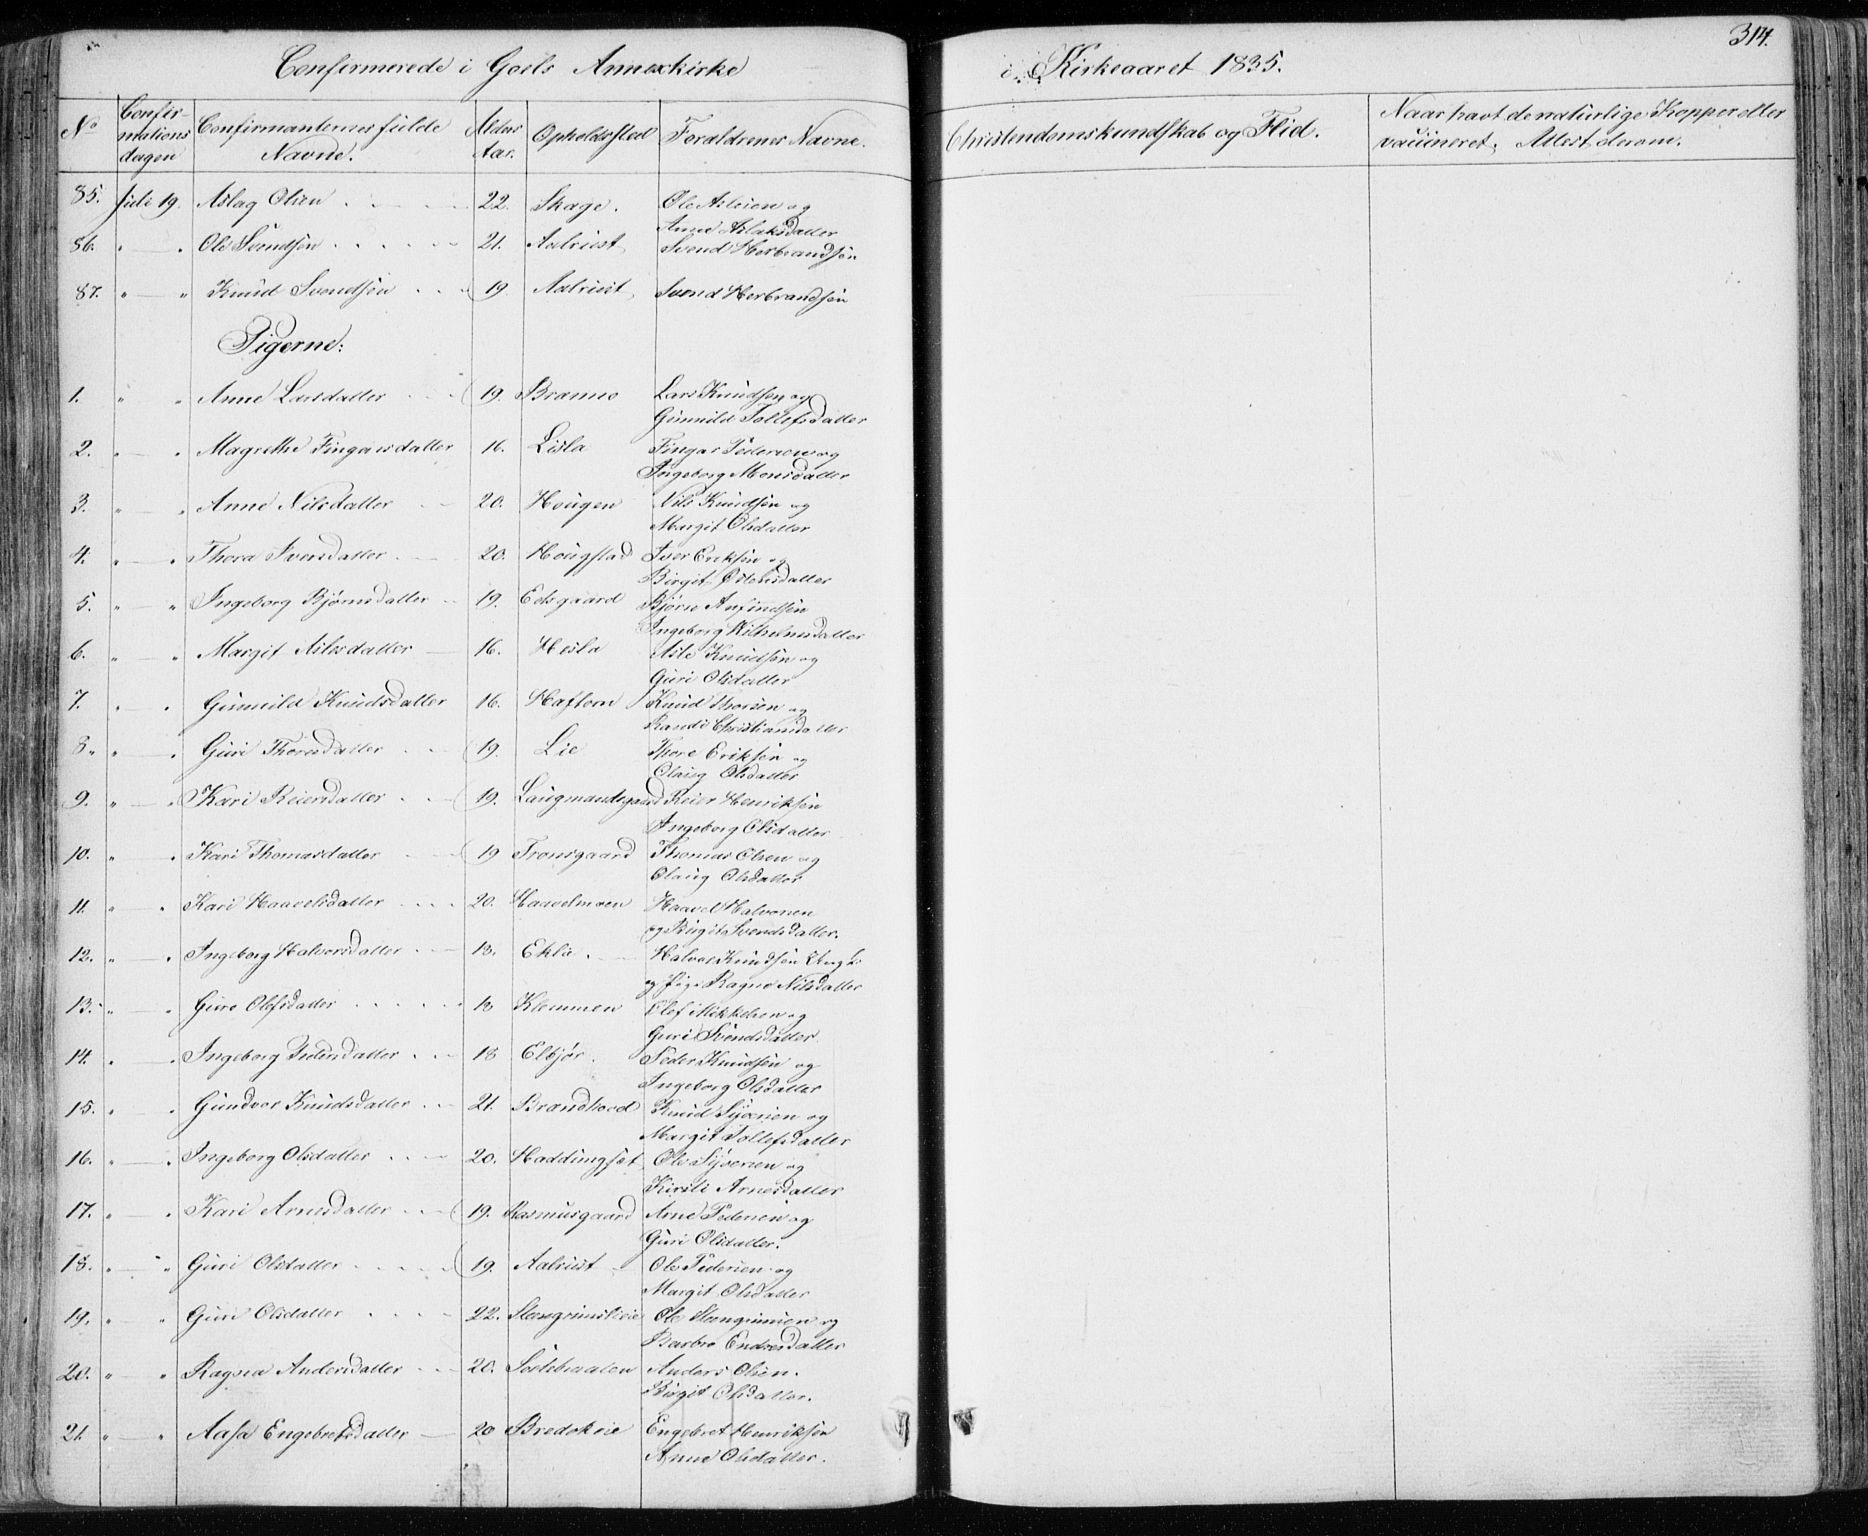 314.
Confirmerede i Goels Annexkirke i Kirkeaaret 1835.
No Confirmationsdagen Confirmanternes fulde Navne. Alders Aar. Opholdssted Forældrenes Navne. Christendomskundskab og Flid. Naar havt de naturlige Kopper eller vaccineret. Attest derom.
85. Juli 19. Aslag Olsen 22. Skage. Ole Aslesen og
Anne Aslaksdatter
86. " — " Ole Svendsøn 21. Aalrust Svend Herbrandsøn
87. " — " Knud Svendsøn 19 Aalrust Svend Herbrandsøn
Pigerne:
1. " " Anne Larsdatter 19. Lars Knudsen og
Gunnild Tollefsdatter
2. " — " Magrethe Fingarsdatter 16. Lisla Fingar Pedersen og
Ingeborg Monsdatter
3. " — " Anne Nilsdatter 20. Hougen Nils Knudsøn og
Margit Olsdatter
4. " — " Thora Iversdatter 20. Hougstad Iver Eriksøn og
Birgit Østensdatter
5. " — " Ingeborg Bjørnsdatter 19. Eidsgaard Bjørn Anfindsøn
Ingeborg Wilhelmsdatter
6. " — " Margit Aslesdatter 16. Hesla Asle Knudsøn og
Guri Olsdatter
7. " — " Gunnild Knudsdatter 16. Haftorn Knud Thorsen og
Randi Christiansdatter
8. " — " Guri Thoresdatter 19. Lie Thore Eriksøn og
Olaug Olsdatter
9. " — " Kari Reiersdatter 19. Laugmandsgaard Reier Henriksøn
Ingeborg Olsdatter
10. " — " Kari Thomasdatter 19 Tronsgaard Thomas Olsen og
Olaug Olsdatter
11. " — " Kari Haavelsdatter 20. Haavelmoen Haavel Halvorsen
og Birgit Svendsdatter.
12. " — " Ingeborg Halvorsdatter 18. Eklie. Halvor Knudsøn Ungk:
og Pige Ragne Nilsdatter
13. " — " Guro Olefsdatter 18 Klemmen Olef Mikkelsen og
Guri Svendsdatter
14. " — " Ingeborg Pedersdatter 18 Elbjør. Peder Knudsøn og
Ingeborg Olsdatter
15. " " Gundvor Knudsdatter 21. Brandhovd Knud Syversen og
Margit Tollefsdatter
16. " — " Ingeborg Olsdatter 20. Haddingset Ole Syversen og
Kirsti Arnesdatter
17. " — " Kari Arnesdatter 19. Rasmusgaard Arne Pedersen og
Guri Olsdatter.
18. " — " Guri Olsdatter 19. Aalrust Ole Pedersen og
Margit Olsdatter
19. " — " Guri Olsdatter 22. Ole Stengrimsen og
Barbro Endresdatter
20. " — " Ragna Andersdatter 20. Anders Olsen.
Birgit Olsdatter.
21. " — " Aasa Engebretsdatter 20 Bredokeie Engebret Henriksøn
Anne Olsdatter.